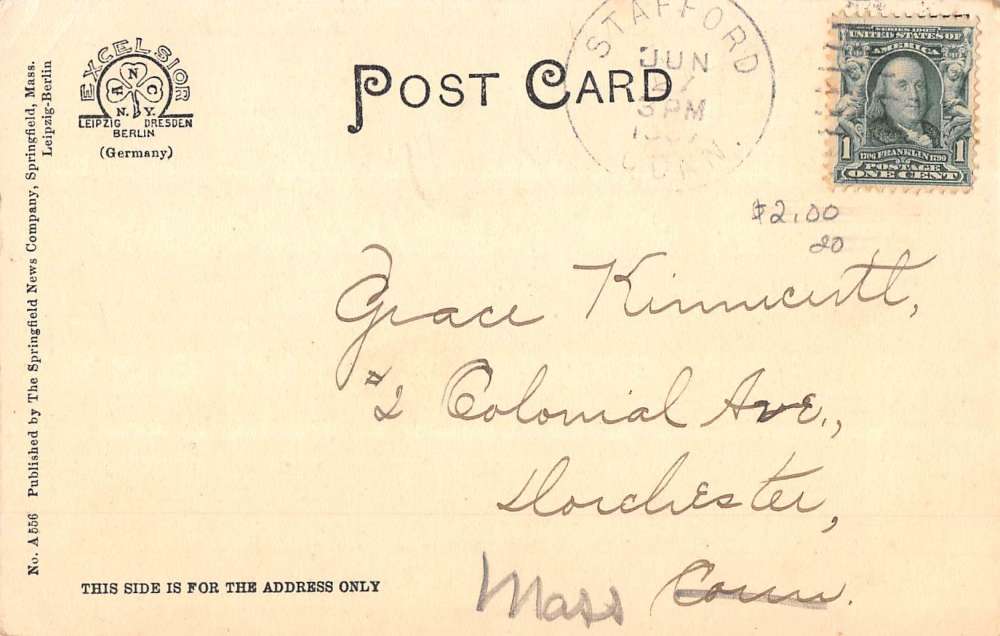 EXCELSIOR
A N C
N. Y.
LEIPZIG DRESDEN
BERLIN
(Germany)
POST CARD
STAFFORD
JUN
3 PM
CONN.
SERIES 1902
UNITED STATES OF
AMERICA
1 1706 FRANKLIN 1790 1
POSTAGE
ONE CENT
$2.00
20
Grace Kinnicutt,
#2 Colonial Ave.,
Dorchester,
Mass Conn.
THIS SIDE IS FOR THE ADDRESS ONLY
No. A 556 Published by The Springfield News Company, Springfield, Mass.
Leipzig-Berlin